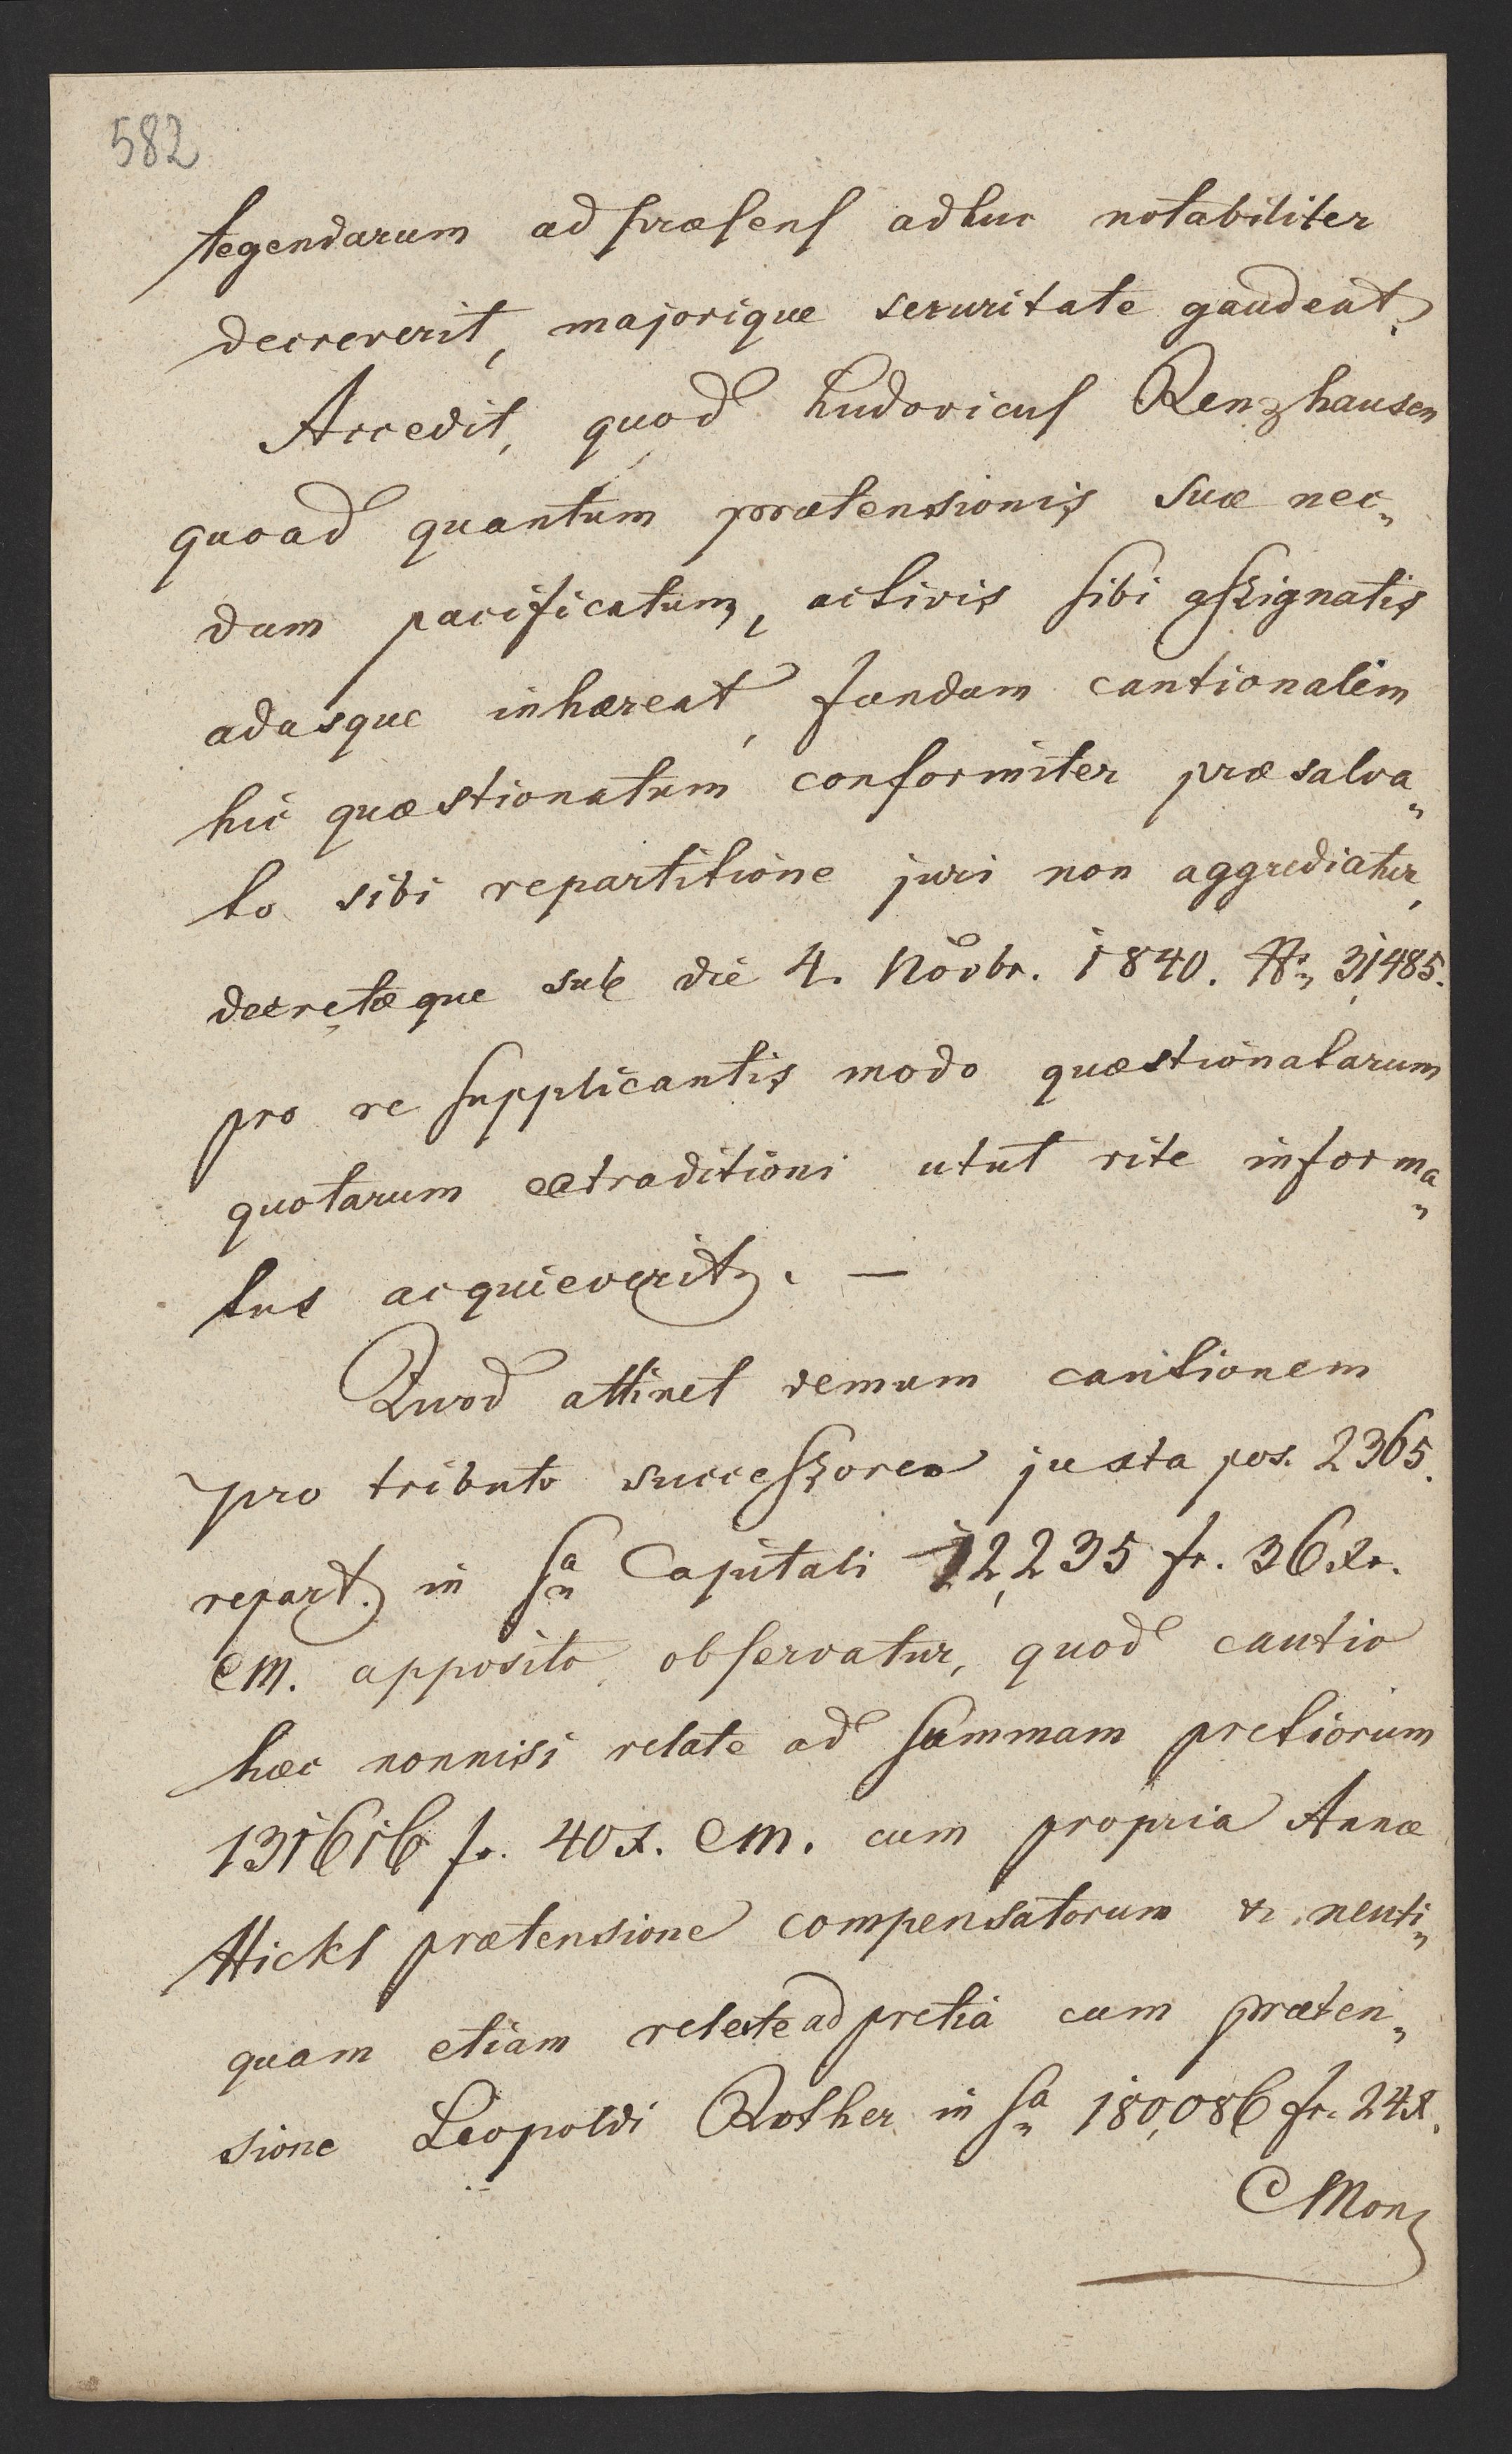 582
tegendarum ad præsens adhuc notabiliter
decreverit, majorique securitate gaudeat.
Accedit, quod Ludovicus Renzhausen
quoad quantum prætensionis suæ nec„
dum pacificatum, activis sibi assignatis
adusque inhæreat, fundum cautionalem
hic quæstionatum conformiter præsalva„
to sibi repartitione juri non aggrediatur,
decretæque sub die 4. Novbr. 1840. Nr. 31,485.
pro re supplicantis modo quæstionatarum
quotarum extraditioni utut rite informa„
tus acquieverit. —
Quod attinet demum cautionem
pro tributo successoreo juxta pos. 2365.
repart. in Sa Capitali 12,235 fr. 36 xr.
CM. apposito, observatur, quod cautio
hæc nonnisi relate ad summam pretiorum
131616 fr. 40 x. CM. cum propria Annæ
Hickl prætensione compensatorum & neuti„
quam etiam relate ad pretia cum præten„
sione Leopoldi Rother in Sa 180,086 fr. 24 x.
CMon